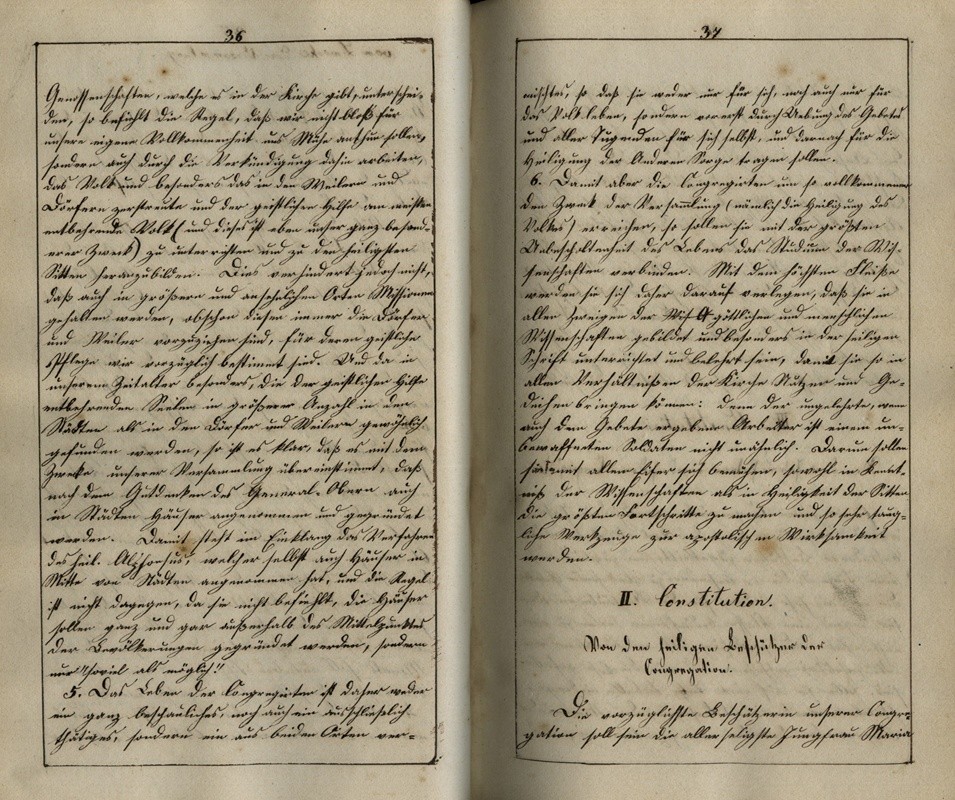 36
Genossenschaften, welche es in der Kirche gibt, unterschei-
den, so befiehlt die Regel, daß wir nicht bloß für
unsere eigene Vollkommenheit uns Mühe anthun sollen,
sondern auch durch die Verkündigung dahin arbeiten,
das Volk und besonders das in den Weilern und
Dörfern zerstreute und der geistlichen Hilfe am meisten
entbehrende Volk (und dieses ist eben unser ganz besond-
erer Zweck) zu unterrichten und zu den heiligsten
Sitten heranzubilden. Dies verhindert jedoch nicht,
daß auch in größern und ansehnlichen Orten Missionen
gehalten werden, obschon diesen immer die Dörfer
und Weiler vorzuziehen sind, für deren geistliche
Pflege wir vorzüglich bestimmt sind. Und da in
unserem Zeitalter besonders, die der geistlichen Hilfe
entbehrenden Seelen in größerer Anzahl in den
Städten als in den Dörfer und Weilern gewöhnlich
gefunden werden, so ist es klar, daß es mit dem
Zwecke unserer Versammlung übereinstimmt, daß
nach dem Gutdenken des General-Obern auch
in Städten Häuser angenommen und gegründet
werden. Damit steht im Einklang das Verfahren
des heil. Alphonsus, welcher selbst auch Häuser in
Mitte von Städten angenommen hat, und die Regel
ist nicht dagegen, da sie nicht befiehlt, die Häuser
sollen ganz und gar außerhalb des Mittelpunktes
der Bevölkerungen gegründet werden, sondern
nur "soviel als möglich!"
5. Das Leben der Congregirten ist daher weder
ein ganz beschauliches, noch auch ein ausschließlich
thätiges, sondern ein aus beiden Arten ver-
37
mischtes, so daß sie weder nur für sich, noch auch nur für
das Volk leben, sondern vorerst durch Uebung des Gebetes
und aller Tugenden für sich selbst, und darnach für die
Heiligung der Anderen Sorge tragen sollen.
6. Damit aber die Congregirten um so vollkommener
den Zweck der Versammlung (nämlich die Heiligung des
Volkes) erreichen, so sollen sie mit der größten
Unbescholtenheit des Lebens das Studium der Wis-
senschaften verbinden. Mit dem höchsten Fleiße
werden sie sich daher darauf verlegen, daß sie in
allen Zweigen der göttlichen und menschlichen
Wissenschaften gebildet und besonders in der heiligen
Schrift unterrichtet und belehrt sein, damit sie so in
allen Verhältnißen der Kirche Nutzen und Ge-
deihen bringen können: denn der ungelehrte, wenn
auch dem Gebete ergebene Arbeiter ist einem un-
bewaffneten Soldaten nicht unähnlich. Darum sollen
sie mit allem Eifer sich bemühen, sowohl in Kennt-
niß der Wissenschaften als in Heiligkeit der Sitten
die größten Fortschritte zu machen und so sehr taug-
liche Werkzeuge zur apostolischen Wirksamkeit
werden.
II. Constitution.
Von den heiligen Beschützer der
Congregation.
Die vorzüglichste Beschützerin unserer Congre-
gation soll sein die allerseligste Jungfrau Maria